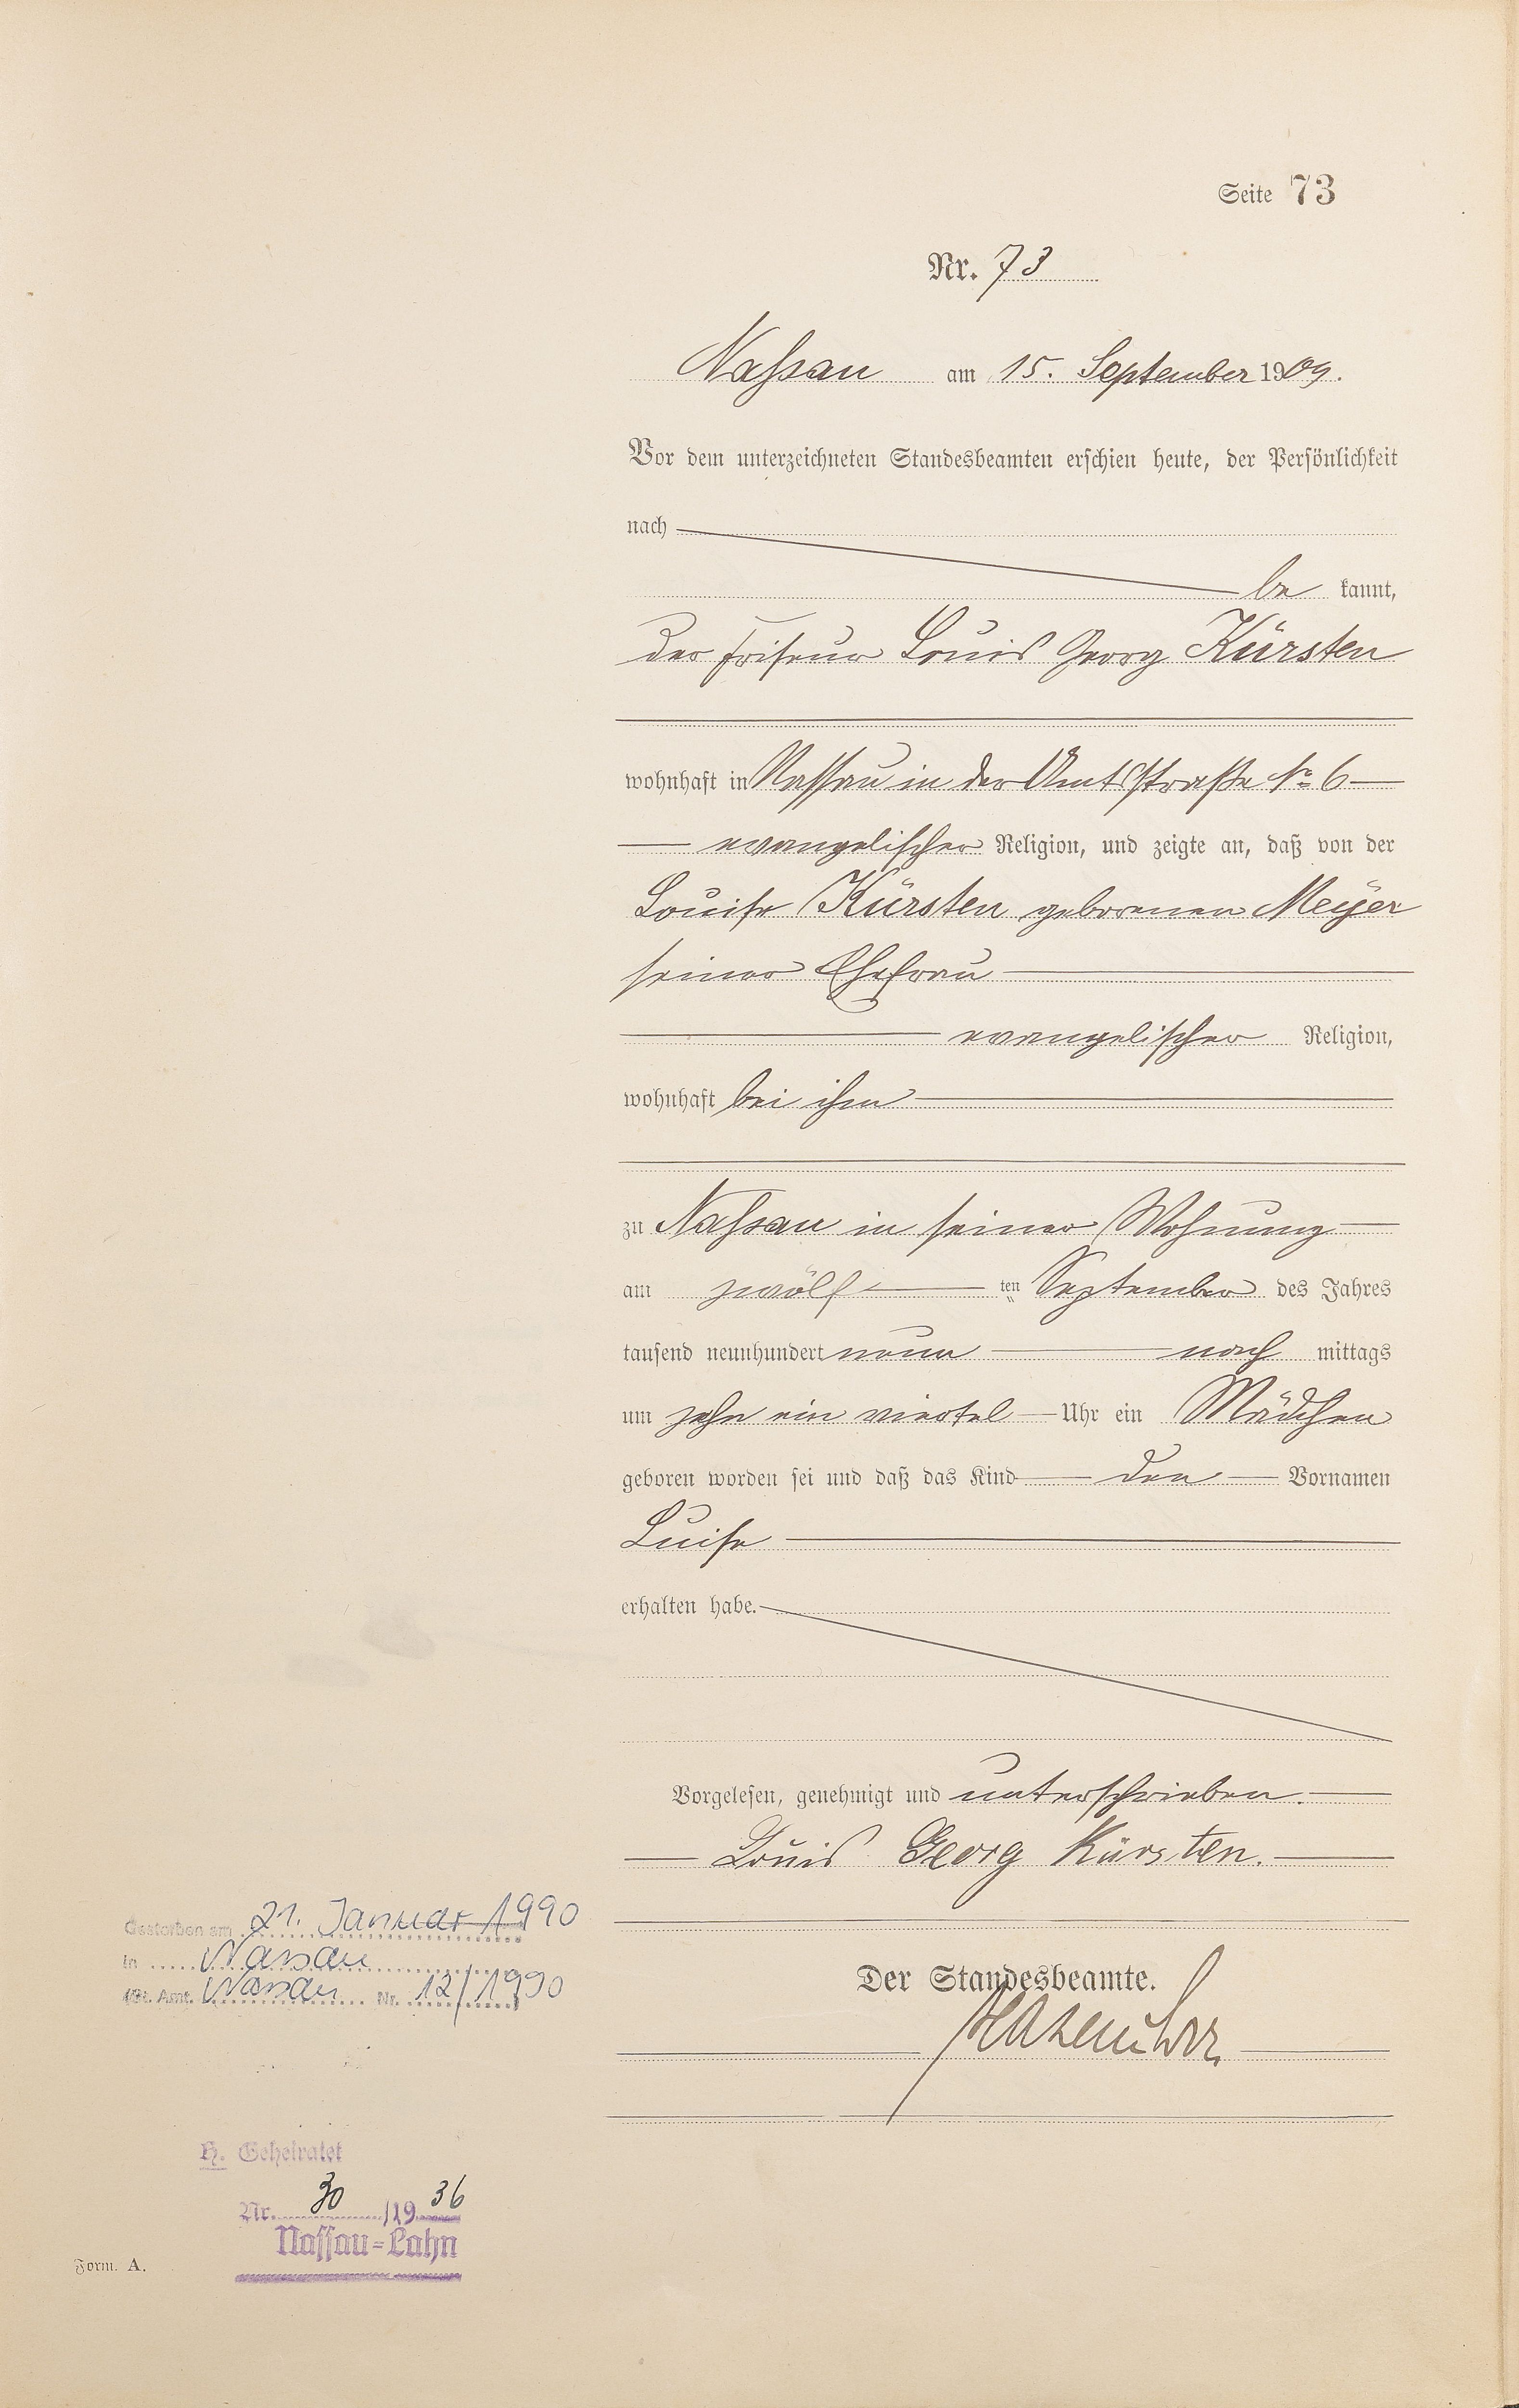 Seite 73
Nr. 73
Nassau am 15. September 1909.
Vor dem unterzeichneten Standesbeamten erschien heute, der Persönlichkeit
nach
be kannt,
der Friseur Louis Georg Kürsten
wohnhaft in Nassau in der Amtsstraße No 6
evangelischer Religion, und zeigte an, daß von der
Louise Kürsten geborenen Meyer
seiner Ehefrau
evangelischer Religion,
wohnhaft bei ihm
zu Nassau in seiner Wohnung
am zwölf ten September des Jahres
tausend neunhundert neun nach mittags
um zehn ein viertel Uhr ein Mädchen
geboren worden sei und daß das Kind den Vornamen
Luise
erhalten habe.
Vorgelesen, genehmigt und unterschrieben.
Louis Georg Kürsten.
Der Standesbeamte.
Gestorben am 21. Januar 1990
in Nassau
St. Amt. Nassau Nr. 12/1990
H. Geheiratet
Nr. 30 /19 36
Nassau=Lahn
Form. A.